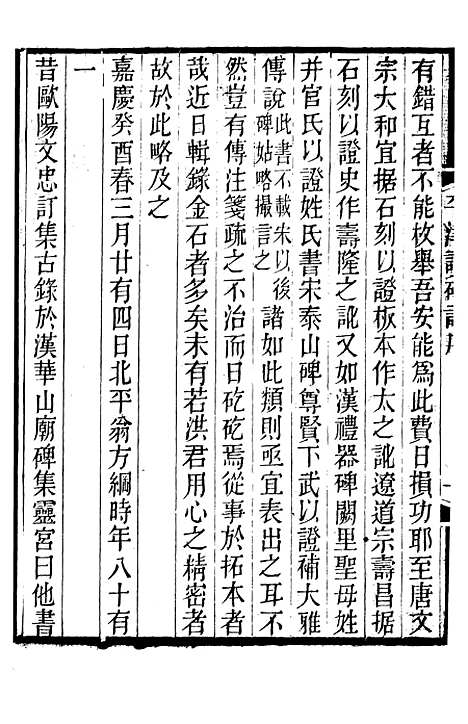 有錯互者不能枚舉吾安能爲此費日損功耶至唐文
宗大和宜据石刻以證板本作太之訛遼道宗壽昌据
石刻以證史作壽隆之訛又如漢禮器碑闕里聖母姓
并官氏以證姓氏書宋泰山碑尊賢下武以證補大雅
傳說此書不載朱以後碑姑略撮言之諸如此類則亟宜表出之耳不
然豈有傳注箋疏之不治而日矻矻焉從事於拓本者
哉近日輯錄金石者多矣未有若洪君用心之精密者
故於此略及之
嘉慶癸酉春三月廿有四日北平翁方綱時年八十有
一
昔歐陽文忠訂集古錄於漢華山廟碑集靈宮曰他書